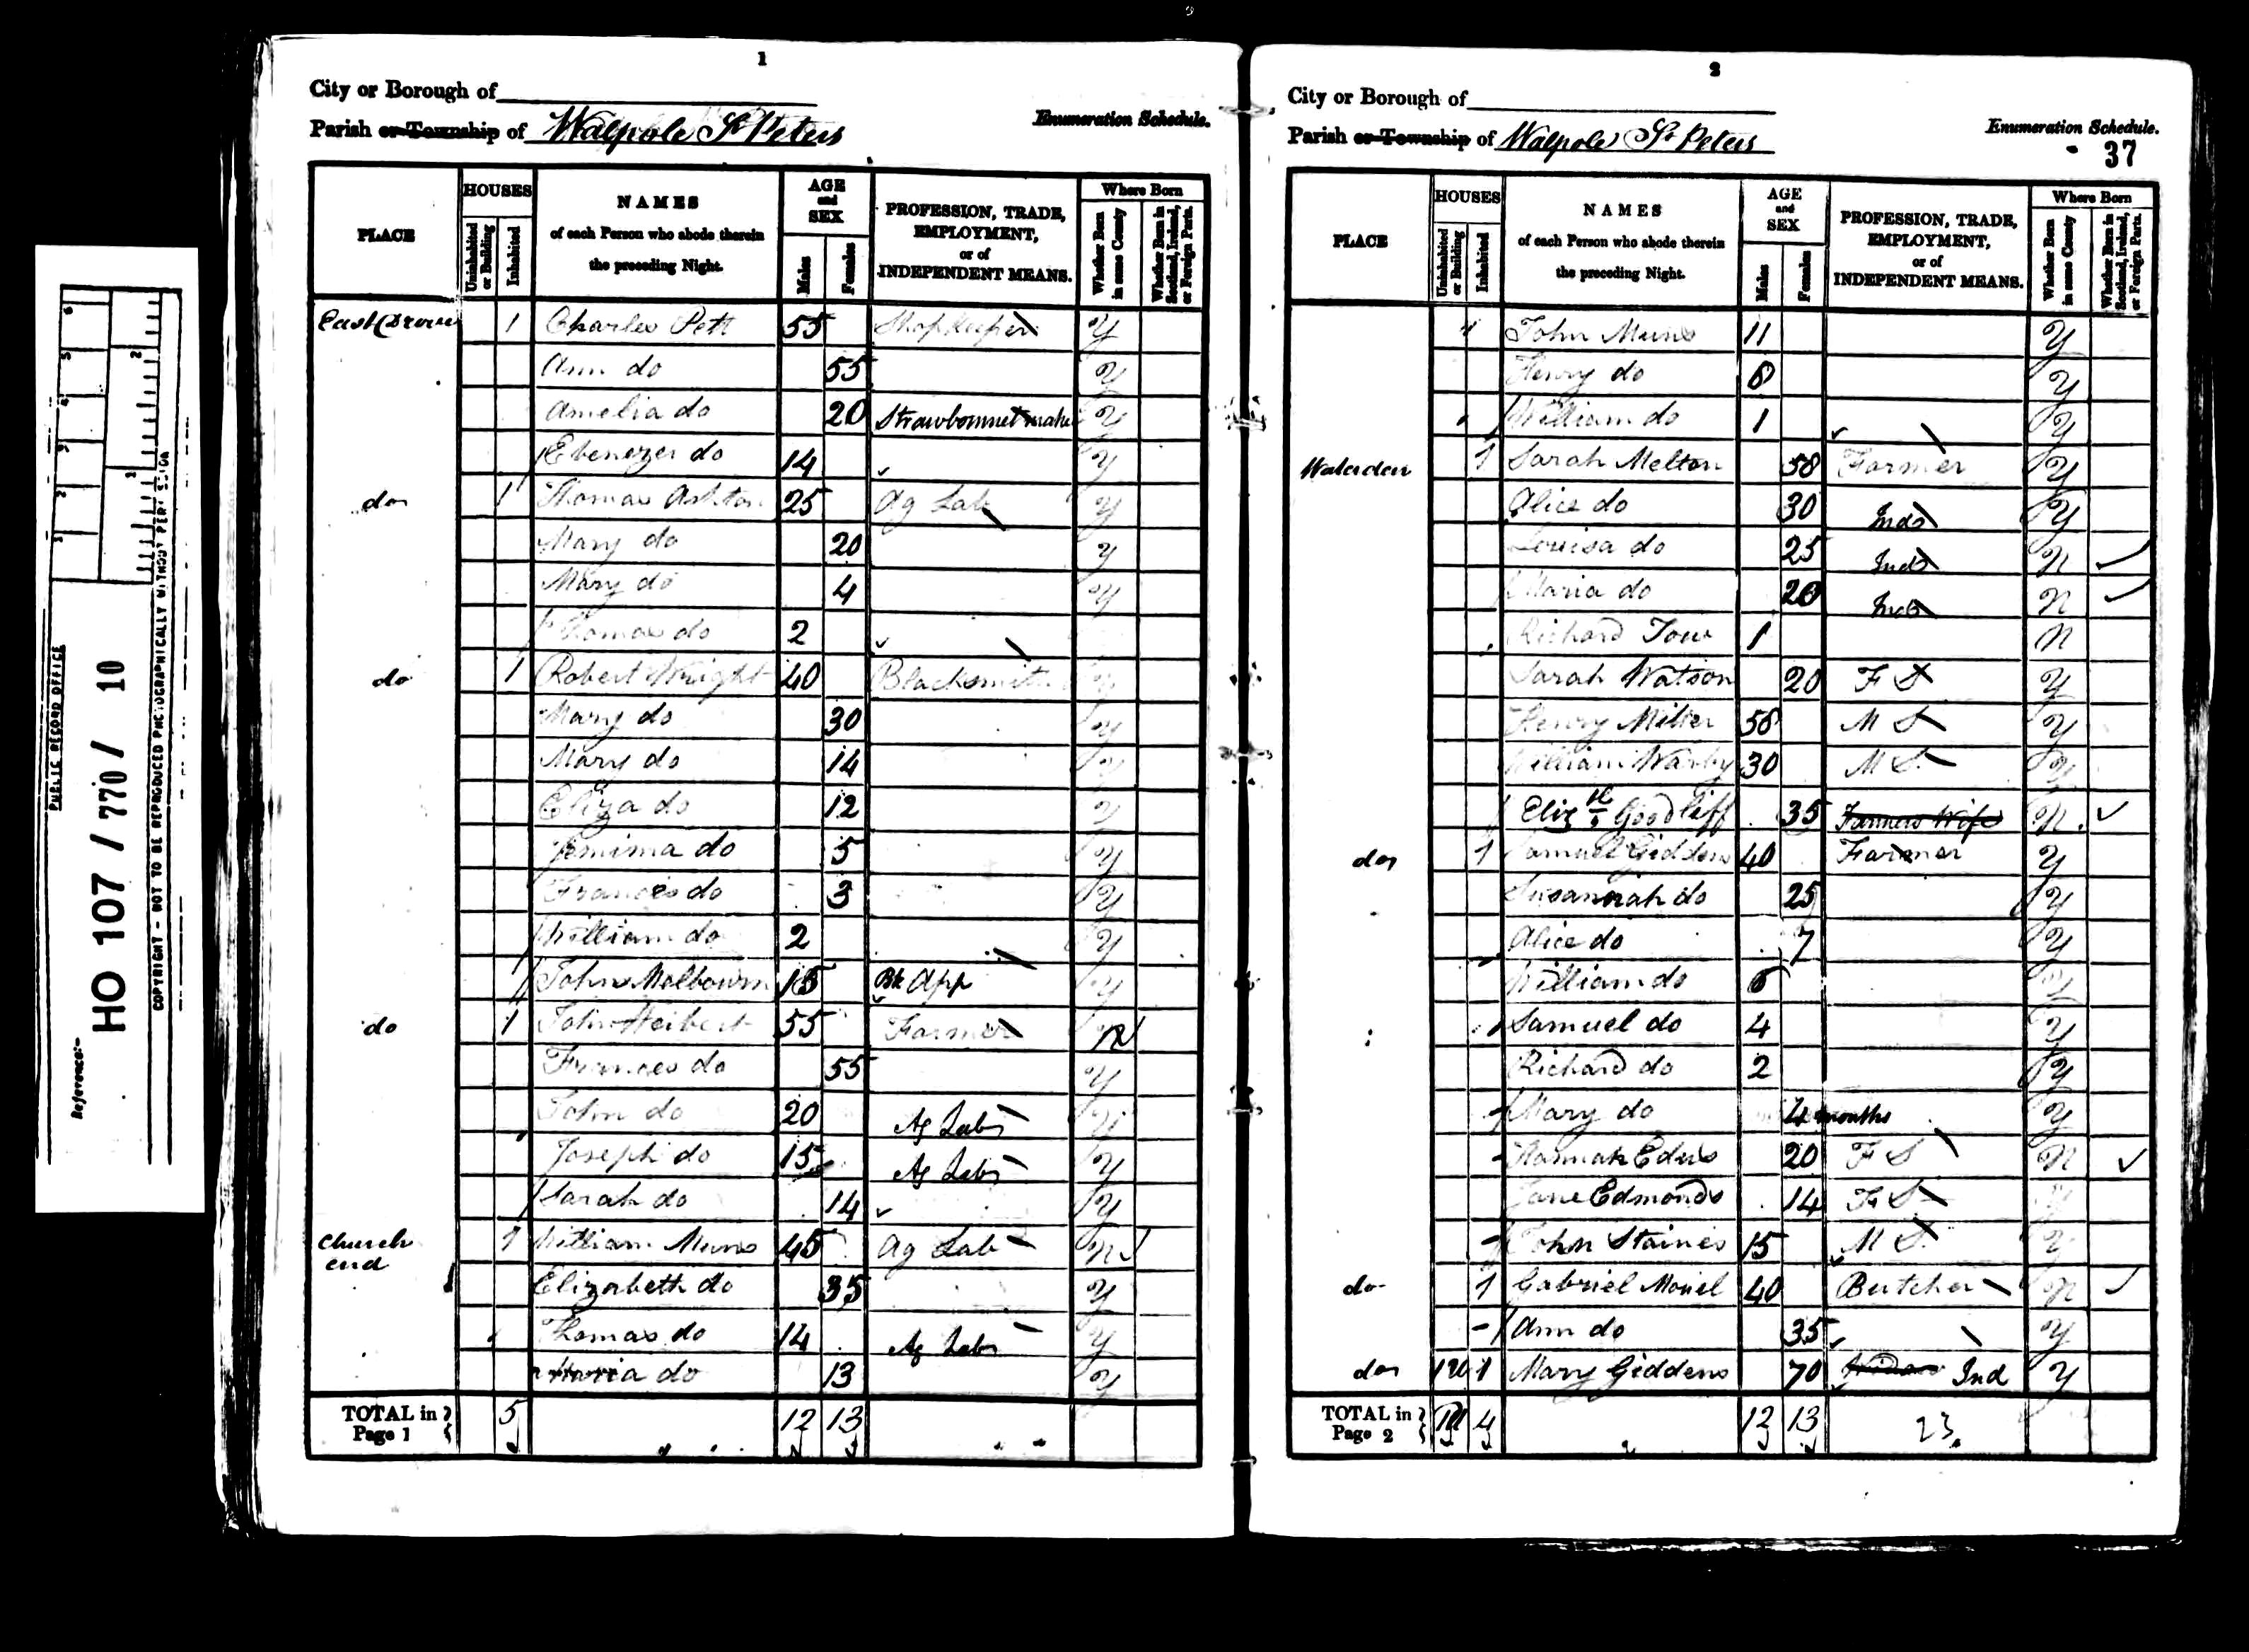 PUBLIC RECORD OFFICE
Reference:-
HO 107 / 770 / 10
COPYRIGHT - NOT TO BE REPRODUCED PHOTOGRAPHICALLY WITHOUT PERMISSION
1
City or Borough of
Enumeration Schedule.
Parish or Township of Walpole St Peters
PLACE
HOUSES
Uninhabited or Building
Inhabited
NAMES
of each Person who abode therein
the preceding Night.
AGE and SEX
Males
Females
PROFESSION, TRADE, EMPLOYMENT, or of INDEPENDENT MEANS.
Where Born
Whether Born in same County
Whether Born in Scotland, Ireland, or Foreign Parts.
East Drove 1 Charles Pett 55 Shopkeeper Y
Ann do 55 Y
Amelia do 20 Strawbonnet maker Y
Ebenezer do 14 Y
do 1 Thomas Ashton 25 Ag Lab Y
Mary do 20 Y
Mary do 4 Y
Thomas do 2
do 1 Robert Wright 40 Blacksmith Y
Mary do 30 Y
Mary do 14 Y
Eliza do 12 Y
Jemima do 5 Y
Frances do 3 Y
William do 2 Y
John Melbourn 15 Bk App Y
do 1 John Heibert 55 Farmer N
Frances do 55 Y
John do 20 Ag Lab Y
Joseph do 15 Ag Lab Y
Sarah do 14 Y
Church end 1 William Muns 45 Ag Lab N
Elizabeth do 35 Y
Thomas do 14 Ag Lab Y
Maria do 13 Y
TOTAL in Page 1 5 12 13
2
City or Borough of
Enumeration Schedule.
Parish or Township of Walpole St Peters
37
PLACE
HOUSES
Uninhabited or Building
Inhabited
NAMES
of each Person who abode therein
the preceding Night.
AGE and SEX
Males
Females
PROFESSION, TRADE, EMPLOYMENT, or of INDEPENDENT MEANS.
Where Born
Whether Born in same County
Whether Born in Scotland, Ireland, or Foreign Parts.
John Muns 11 Y
Henry do 8 Y
William do 1 Y
1 Sarah Melton 58 Farmer Y
Alice do 30 Ind Y
Louisa do 25 Ind N
Maria do 20 Ind N
Richard 1 N
Sarah Watson 20 F S Y
Henry Miller 58 M S Y
William Warby 30 M S Y
Eliz Goodliff 35 Farmers Wife N
do 1 Samuel Giddens 40 Farmer Y
Susannah do 25 Y
Alice do 7 Y
William do 6 Y
Samuel do 4 Y
Richard do 2 Y
Mary do 4 months Y
Hannah 20 F S N
Jane Edmonds 14 F S Y
John Staines 15 M S Y
do 1 Gabriel 40 Butcher N
Ann do 35 Y
do 1 Mary Giddens 70 Ind Y
TOTAL in Page 2 4 12 13
23